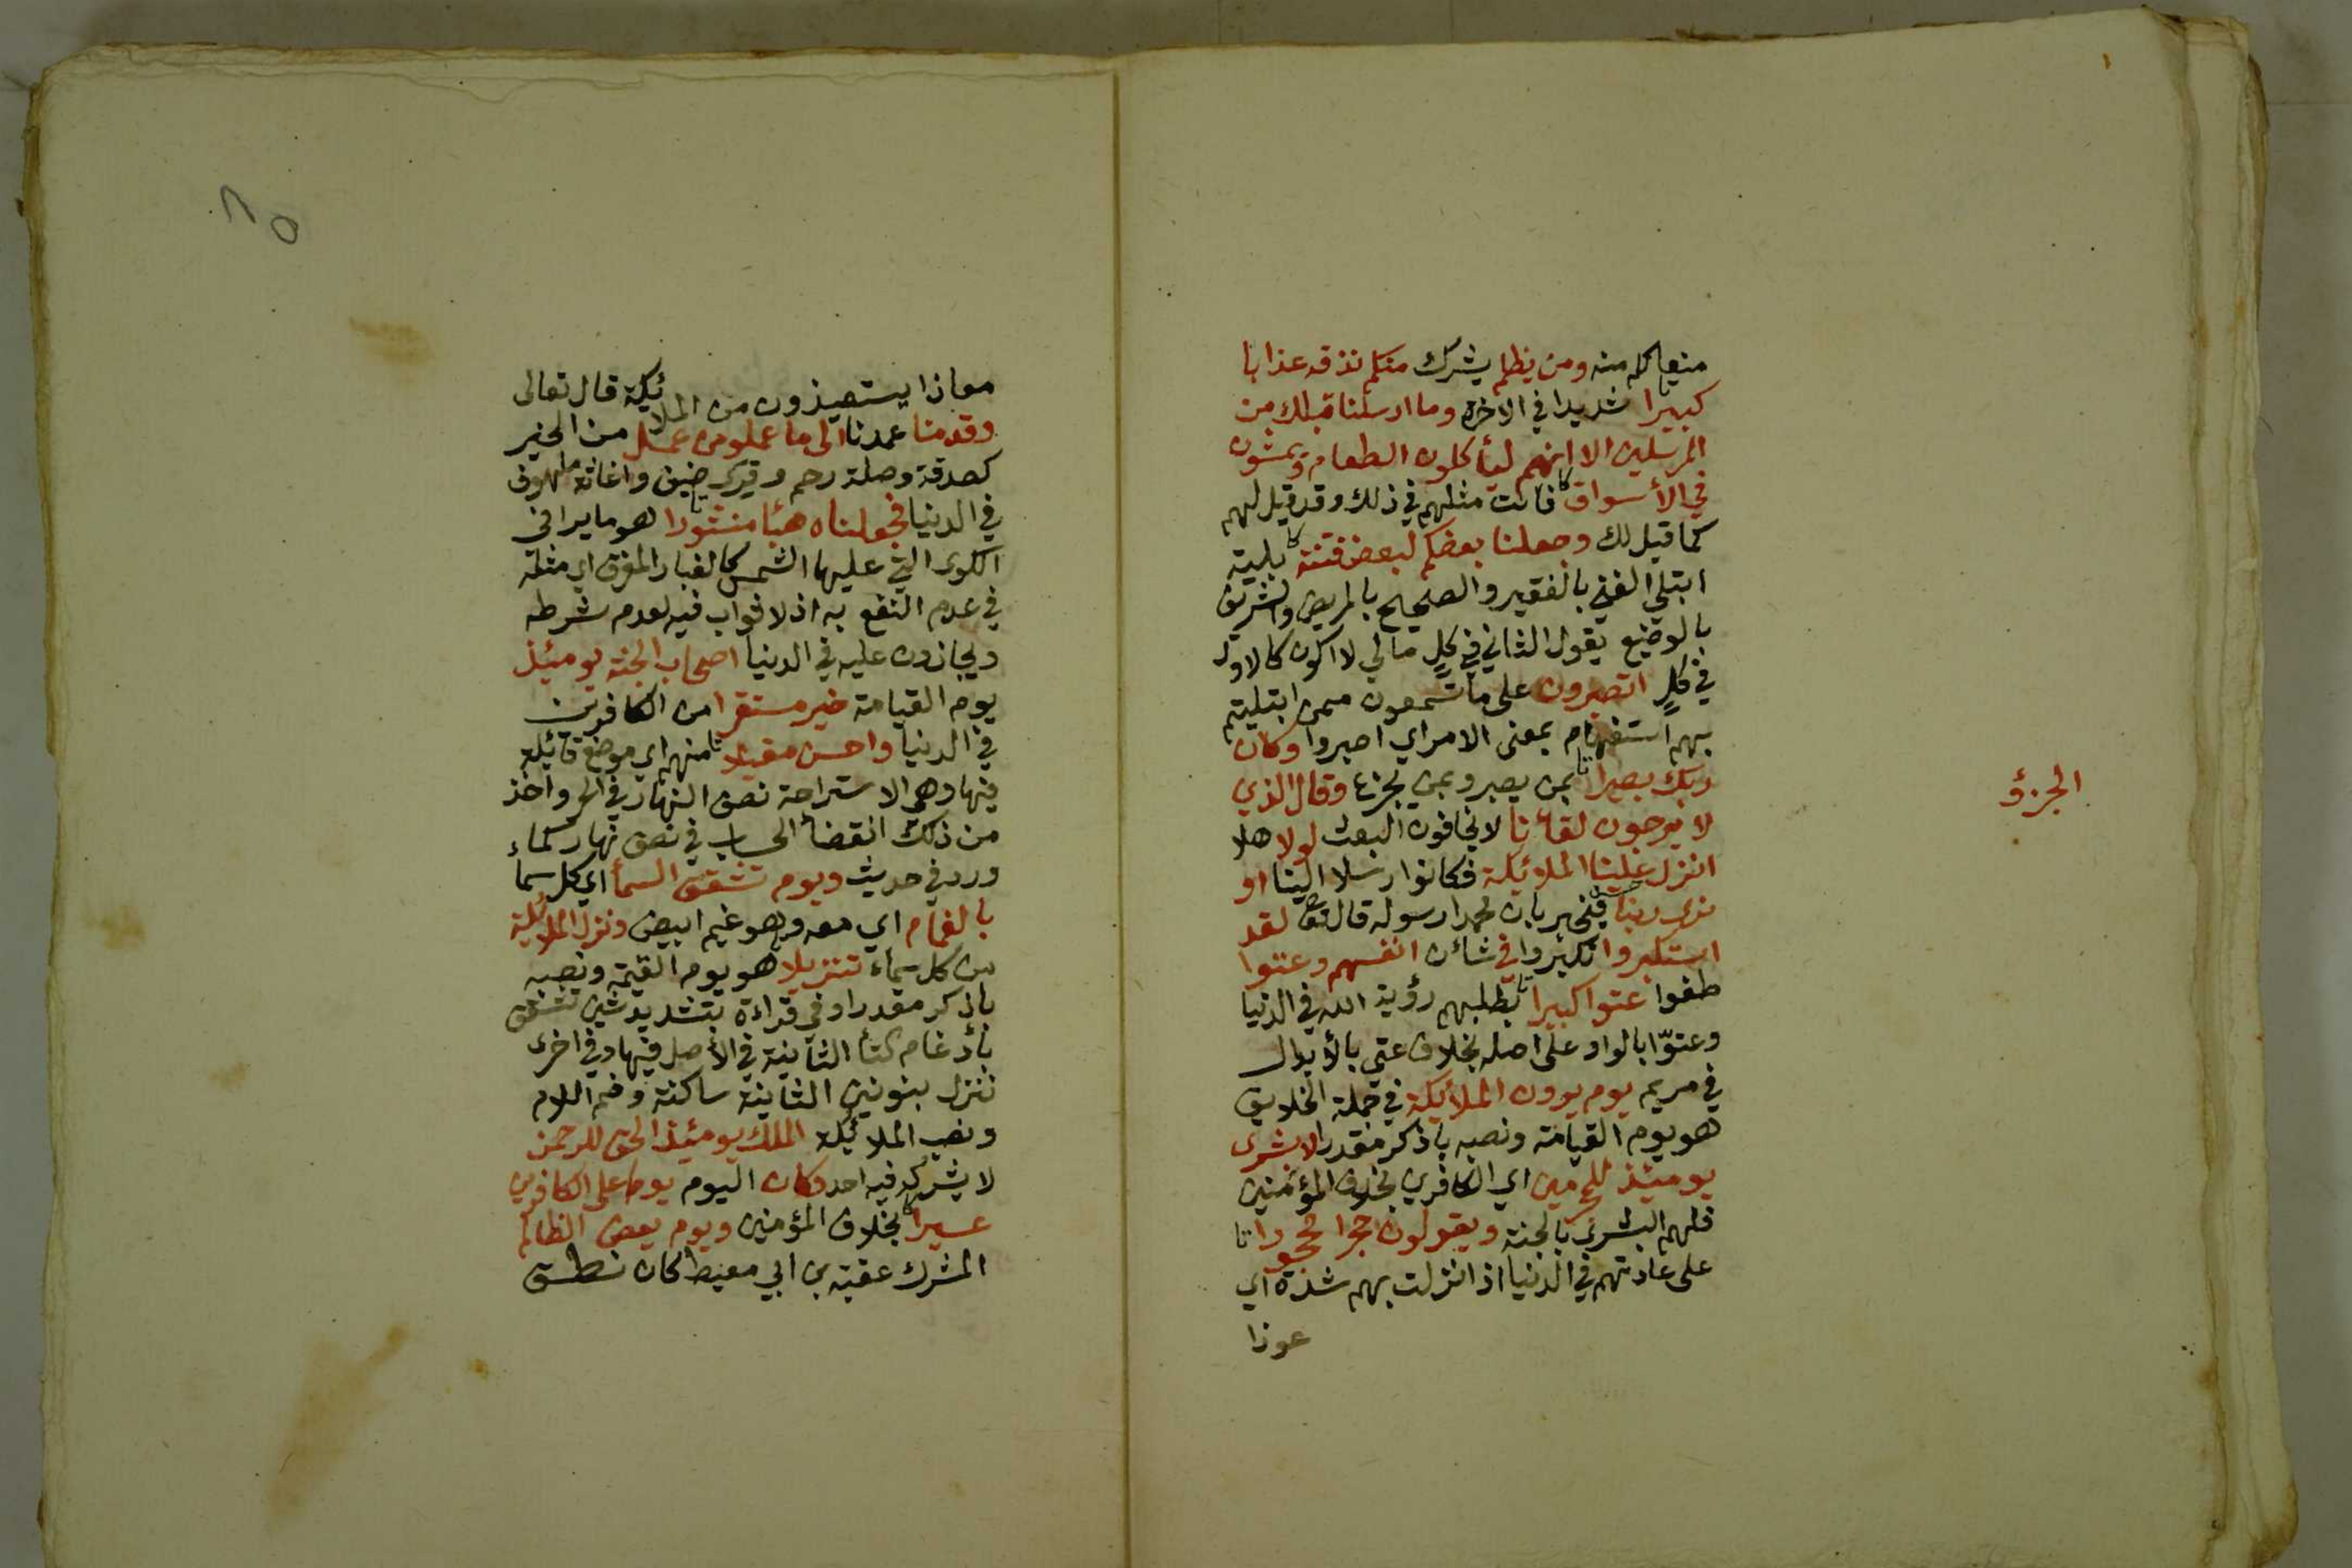 منعا كلم منه ومن يظلم يشرك منكم نذقه عذابا
كبيرا شديدا في الاخرة وما ارسلنا قبلك من
المرسلين الا انهم ليأكلون الطعام ويمشون
في الأسواق فانت مثلهم في ذلك وقد قيل لهم
كما قيل لك وجعلنا بعضكم لبعض فتنة بلية
ابتلي الغني بالفقير والصحيح بالمريض والشريف
بالوضيع يقول الثاني في كلٍ مالي لا اكون كالاول
في كلٍ اتصبرون على ما تسمعون ممن ابتليتم
بهم استفهام بمعنى الامر اي اصبروا وكان
ربك بصيرا بمن يصبر وبمن يجزع وقال الذي
الجزؤ
لا يرجون لقائنا لا يخافون البعث لولا هلا
انزل علينا الملائكة فكانوا رسلا الينا او
نرى ربنا فيخبر بان محمدا رسوله قال تعا لقد
استكبروا تكبروا في شائن انفسهم وعتوا
طغوا عتوا كبيرا بطلبهم رؤية الله في الدنيا
وعتوّا بالواو على اصله بخلاف عتي بالأبدال
في مريم يوم يرون الملائكة في جملة الخلايق
هو يوم القيامة ونصبه باذكر مقدرا لا بشرى
يومئذ للمجرمين اي الكافرين بخلاف المؤمنين
فلهم البشرى بالجنة ويقولون حجرا محجورا
على عادتهم في الدنيا اذا نزلت بهم شدة اي
عوذا
٨٥
معاذا يستعيذون من الملائكة قال تعالى
وقدمنا عمدنا الى ما عملو من عمل من الخير
كصدقة وصلة رحم وقرى ضيف واغاثة ملهوف
في الدنيا فجعلناه هبئا منثورا هو ما يرا في
الكوى التي عليها الشمس كالغبار المفرق اي مثله
في عدم النفع به اذ لا ثواب فيه لعدم شرطه
ويجازون عليه في الدنيا اصحاب الجنة يومئذ
يوم القيامة خير مستقرا من الكافرين
في الدنيا واحسن مقيلا منهم اي موضع قائلة
فيها وهي الاستراحة نصف النهار في الحر واخذ
من ذلك انقضأ الحساب في نصف نهار كماء
ورد في حديث ويوم تشقق السمأ اي كل سما
بالغمام اي معه وهو غيم ابيض ونزل الملائكة
من كل سماء تنزيلا هو يوم القيمة ونصبه
باذكر مقدرا وفي قراءة بتشديد شين تشقق
بأدغام التأ الثانية في الأصل فيها وفي اخرى
ننزل بنونين الثانية ساكنة وضم اللام
ونصب الملائكة الملك يومئذ الحق للرحمن
لا يشركه فيه احد وكان اليوم يوما على الكافرين
عسيرا بخلاف المؤمنين ويوم يعض الظالم
المشرك عقبة بن ابي معيط كان نطق